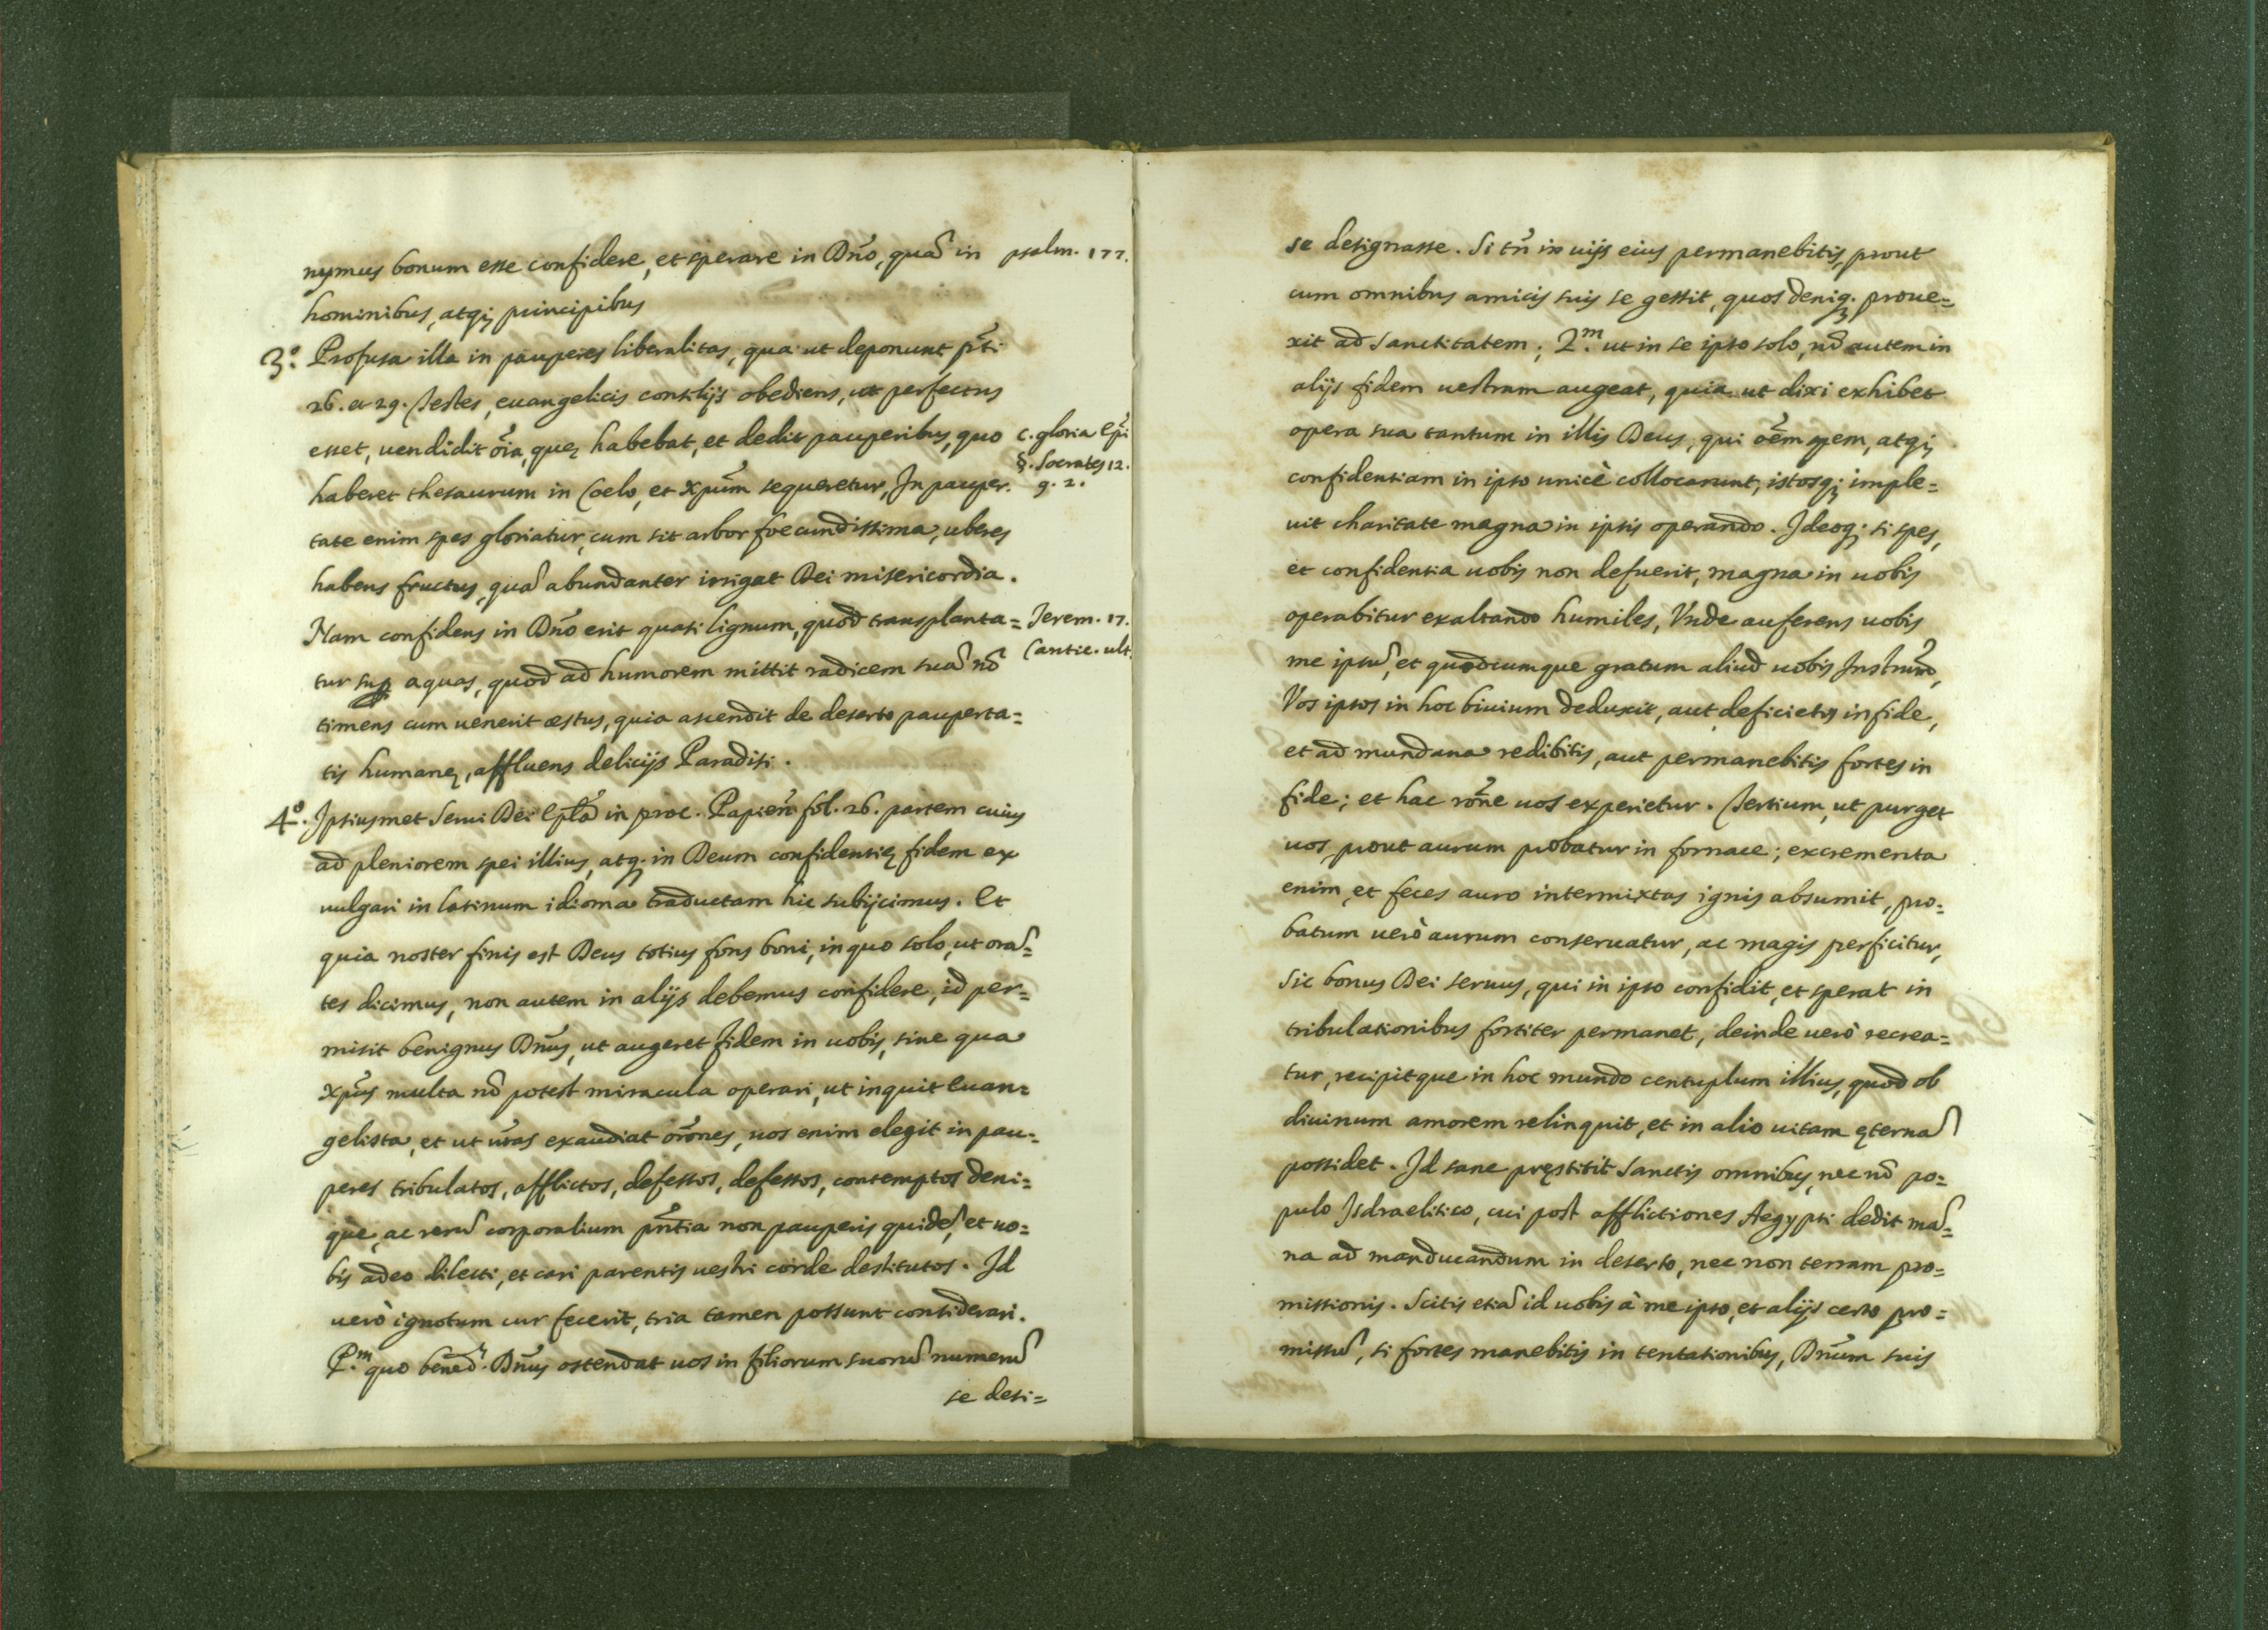 nymus bonum esse confidere, et sperare in Dño, quã in psalm. 177.
hominibus, atq; principibus
3.º Profusa illa in pauperes liberalitas, qua ut deponunt p̃ti
26. et 29. Testes, euangelicis consilijs obediens, ut perfectus
esset, uendidit õia, quę habebat, et dedit pauperibus, quo c. gloria Ep̃i
§. Socrates 12.
haberet thesaurum in Coelo, et Xpũm sequeretur, In pauper. q. 2.
tate enim spes gloriatur, cum sit arbor foecundissima, uberes
habens fructus, quã abundanter irrigat Dei misericordia.
Nam confidens in Dño erit quasi lignum, quod transplanta= Jerem. 17.
Cantic. ult.
tur sup aquas, quod ad humorem mittit radicem suã nõ
timens cum uenerit æstus, quia ascendit de deserto pauperta=
tis humanę, affluens delicijs Paradisi.
4.º Ipsiusmet Serui Dei Ep̃lã in proc. Papieñ fol. 26. partem cuius
ad pleniorem spei illius, atq. in Deum confidentię fidem ex
uulgari in latinum idioma traductam hic subijcimus. Et
quia noster finis est Deus totius fons boni, in quo solo, ut orã=
tes dicimus, non autem in alijs debemus confidere, id per=
misit benignus Dñus, ut augeret fidem in uobis, sine qua
Xpũs multa nõ potest miracula operari, ut inquit Euan=
gelista, et ut ũras exaudiat orõnes, uos enim elegit in pau=
peres tribulatos, afflictos, defessos, defessos, contemptos deni=
que, ac rerũ corporalium pñtia non pauperis quidẽ, et uo=
bis adeo dilecti, et cari parentis uestri corde destitutos. Id
uerò ignotum cur fecerit, tria tamen possunt considerari.
P.m quo bened.s Dñus ostendat uos in filiorum suorũ numerũ
se desi=
se designasse. Si tñ in uijs eius permanebitis, prout
cum omnibus amicis suis se gessit, quos deniq; proue=
xit ad Sanctitatem; 2.m ut in se ipso solo, nõ autem in
alijs fidem uestram augeat, quia ut dixi exhibet
opera sua tantum in illis Deus, qui oẽm spem, atq;
confidentiam in ipso unicè collocarunt, istosq; imple=
uit charitate magna in ipsis operando. Ideoq; si spes,
et confidentia uobis non defuerit, magna in uobis
operabitur exaltando humiles, Vnde auferens uobis
me ipsũ, et quodcumque gratum aliud uobis Instrum̃,
Vos ipsos in hoc biuium deduxit, aut deficietis in fide,
et ad mundana redibitis, aut permanebitis fortes in
fide; et hac rõne uos experietur. Tertium, ut purget
uos, prout aurum probatur in fornace; excrementa
enim, et feces auro intermixtas ignis absumit, pro=
batum uerò aurum conseruatur, ac magis perficitur,
Sic bonus Dei seruus, qui in ipso confidit, et sperat in
tribulationibus fortiter permanet, deinde uerò recrea=
tur, recipitque in hoc mundo centuplum illius, quod ob
diuinum amorem relinquit, et in alio uitam ęternã
possidet. Id sane pręstitit Sanctis omnibus, nec nõ po=
pulo Isdraelitico, cui post afflictiones Aegypti dedit mã=
na ad manducandum in deserto, nec non terram pro=
missionis. Scitis etiã id uobis à me ipso, et alijs certo pro=
missũ, si fortes manebitis in tentationibus, Dñum suis